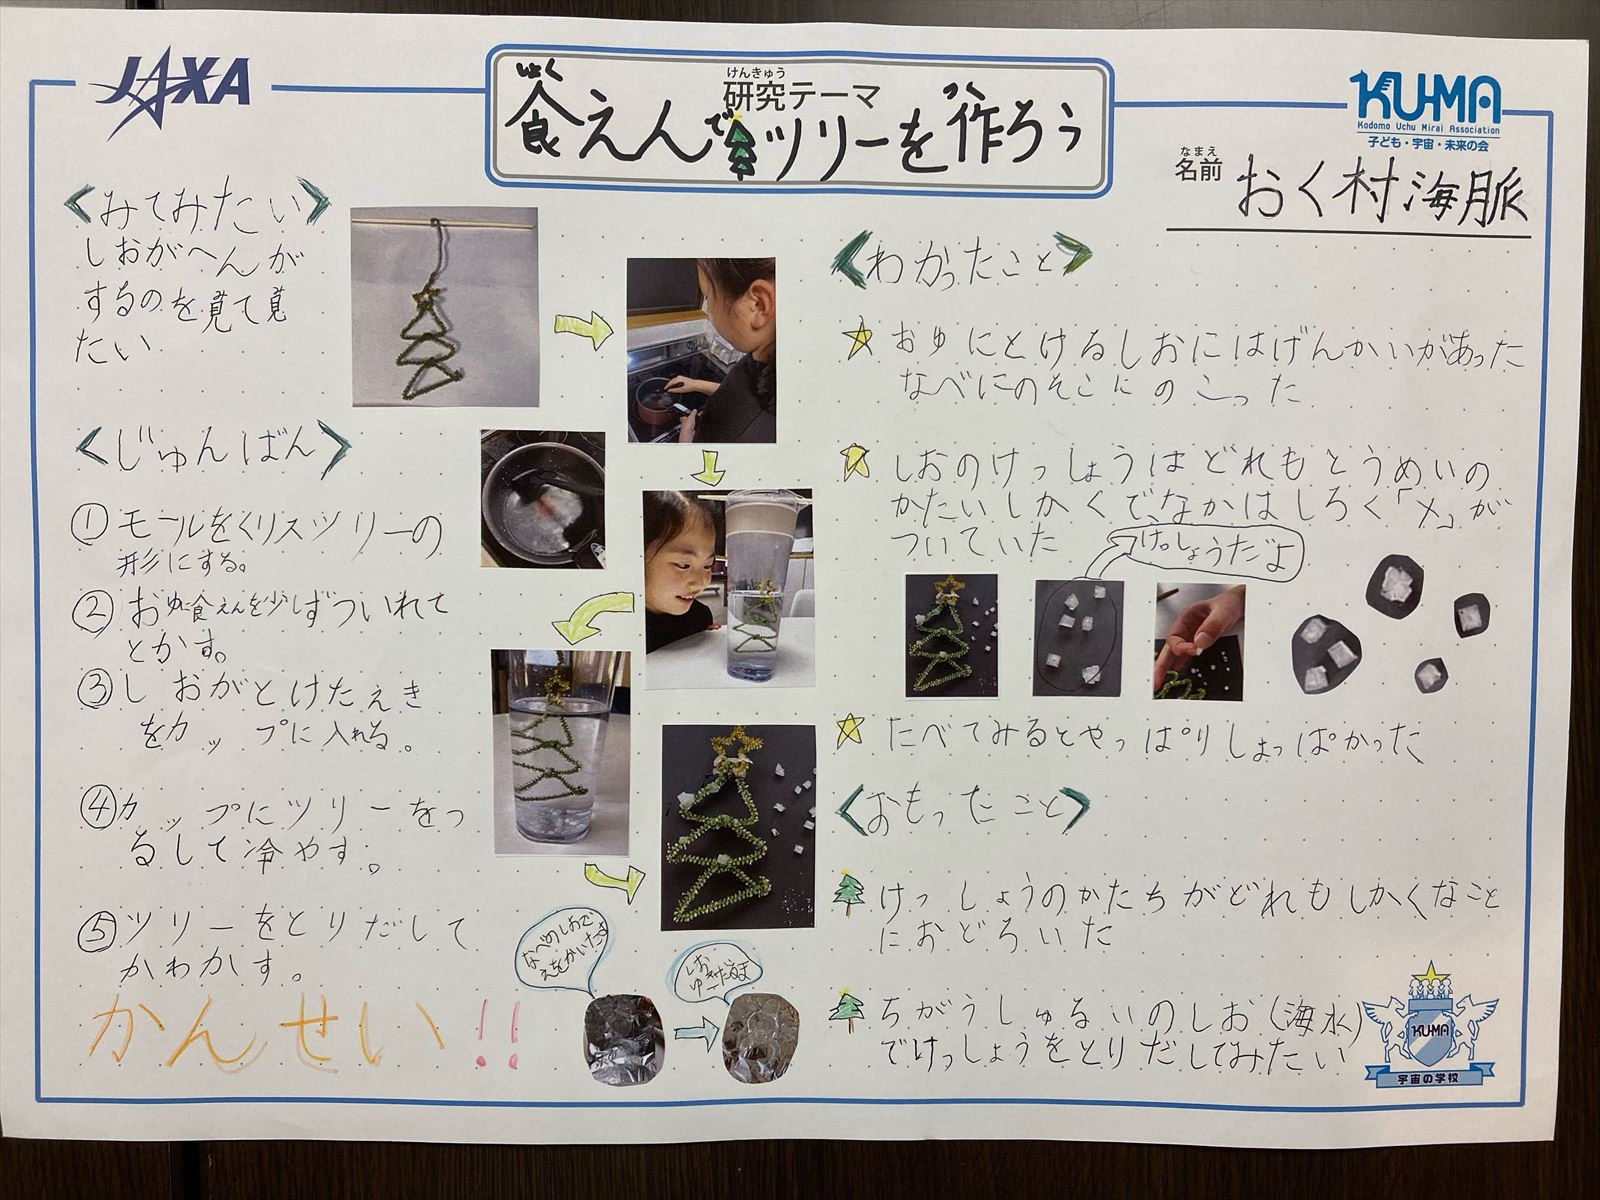 JAXA
けんきゅう
研究テーマ
しょく
つく
食えんでツリーを作ろう
KU-MA
Kodomo Uchu Mirai Association
子ども・宇宙・未来の会
なまえ
名前
おく村海脈
〈みてみたい〉
しおがへんが
するのを見て見
たい
〈じゅんばん〉
①モールをくリスツリーの
形にする。
②おゆに食えんを少しずついれて
とかす。
③しおがとけたえき
をカップに入れる。
④カップにツリーをつ
るして冷やす。
⑤ツリーをとりだして
かわかす。
かんせい!!
なべのしおで
えをかいたよ
しお
ゆきだるま
〈わかったこと〉
おゆにとけるしおにはげんかいがあった
なべにのそこにのこった
しおのけっしょうはどれもとうめいの
かたいしかくで、なかはしろく「メ」が
ついていた
けっしょうだよ
たべてみるとやっぱりしょっぱかった
〈おもったこと〉
けっしょうのかたちがどれもしかくなこと
におどろいた
ちがうしゅるいのしお(海水)
でけっしょうをとりだしてみたい
KU-MA
宇宙の学校